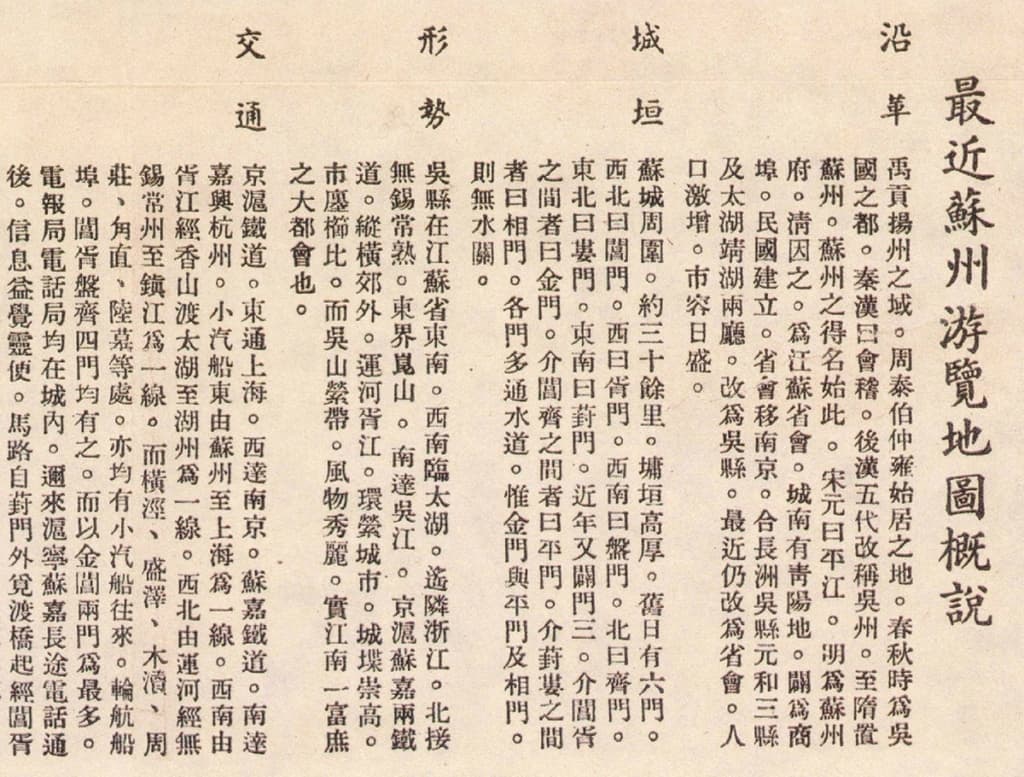 最近蘇州游覽地圖概說
沿革
禹貢揚州之域。周泰伯仲雍始居之地。春秋時為吳
國之都。秦漢曰會稽。後漢五代改稱吳州。至隋置
蘇州。蘇州之得名始此。宋元曰平江。明為蘇州
府。清因之。為江蘇省會。城南有靑陽地。闢為商
埠。民國建立。省會移南京。合長洲吳縣元和三縣
及太湖靖湖兩廳。改為吳縣。最近仍改為省會。人
口激增。市容日盛。
城垣
蘇城周圍。約三十餘里。墉垣高厚。舊日有六門。
西北曰閶門。西曰胥門。西南曰盤門。北曰齊門。
東北曰婁門。東南曰葑門。近年又闢門三。介閶胥
之間者曰金門。介閶齊之間者曰平門。介葑婁之間
者曰相門。各門多通水道。惟金門與平門及相門。
則無水關。
形勢
吳縣在江蘇省東南。西南臨太湖。遙隣浙江。北接
無錫常熟。東界崑山。南達吳江。京滬蘇嘉兩鐵
道。縱橫郊外。運河胥江。環縈城市。城堞崇高。
市廛櫛比。而吳山縈帶。風物秀麗。實江南一富庶
之大都會也。
交通
京滬鐵道。東通上海。西達南京。蘇嘉鐵道。南達
嘉興杭州。小汽船東由蘇州至上海為一線。西南由
胥江經香山渡太湖至湖州為一線。西北由運河經無
錫常州至鎮江為一線。而橫涇、盛澤、木瀆、周
莊、甪直、陸墓等處。亦均有小汽船往來。輪航船
埠。閶胥盤齊四門均有之。而以金閶兩門為最多。
電報局電話局均在城內。邇來滬寧蘇嘉長途電話通
後。信息益覺靈便。馬路自葑門外覓渡橋起經閶胥